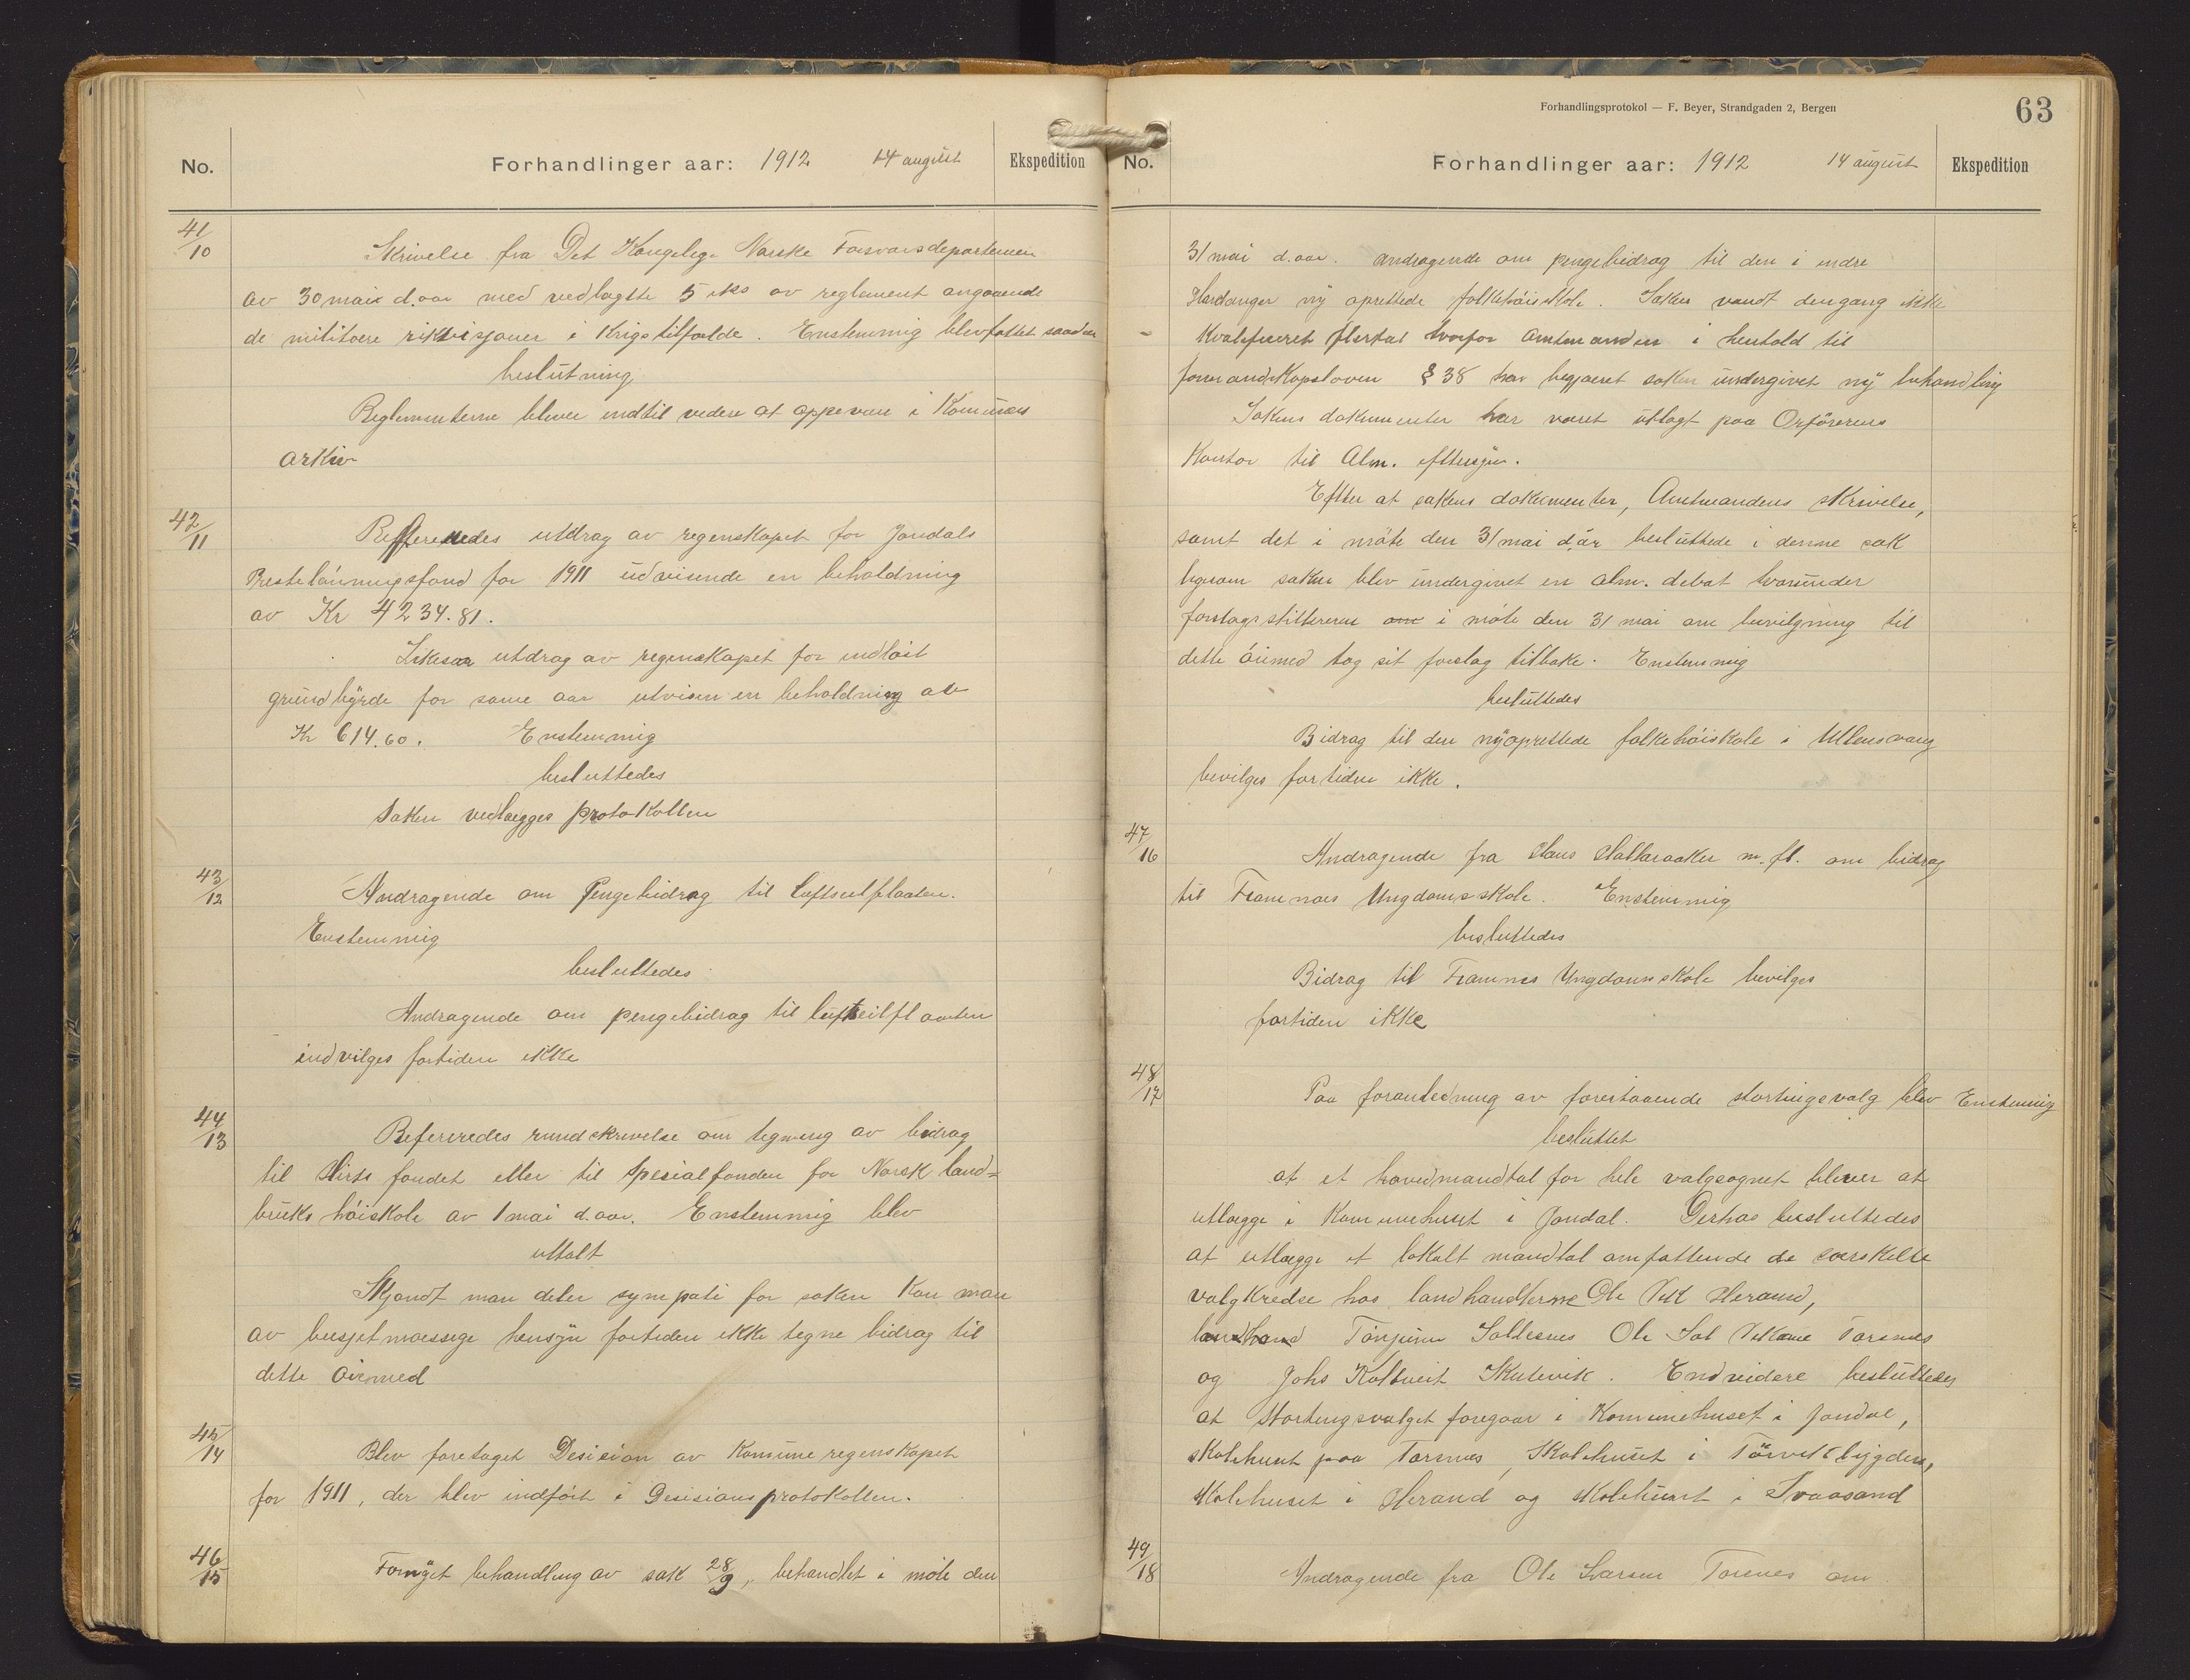 No. Forhandlinger aar: 1912 14 august Ekspedition
41/10
Skrivelse fra Det Kongelige Norske Forsvarsdepartemen
av 30 mai d.aar med vedlagtte 5 eks av reglement angaaende
de militære rikvisjoner i Krigstilfælde. Enstemmig blev fattet saadan
beslutning
Reglementerne blever indtil vedere at oppevare i Komunens
arkiv
42/11
Reffereredes utdrag av regenskapet for Jondals
Prestelönningsfond for 1911 udvisende en beholdning
av Kr 4234.81.
Likesaa utdrag av regenskapet for indlöst
grundbyrde for same aar utvisen en beholdning av
Kr 614.60. Enstemmig
besluttedes
Saken vedlægges protokollen
43/12
Andragende om Pengebidrag til Luftseilflaaten.
Enstemmig
besluttedes
Andragende om pengebidrag til luftseilflaaten
indvilges fortiden ikke
44/13
Refereredes rundskrivelse om tegning av bidrag
til Hirts fondet eller til Spesialfonden for Norsk land=
bruks höiskole av 1 mai d.aar. Enstemmig blev
uttalt
Skjöndt man deler sympati for saken Kan man
av busjetmæssege hensyn fortiden ikke tegne bidrag til
dette öiemed
45/14
Blev foretaget Desision av Komune regenskapet
for 1911, der blev indfört i Desisions protokollen.
46/15
Fornyet behandling av sak 28/9, behandlet i möte den
Forhandlingsprotokol — F. Beyer, Strandgaden 2, Bergen
63
No. Forhandlinger aar: 1912 14 august Ekspedition
31 mai d.aar. andragende om pengebidrag til den i indre
Hardanger ny oprettede folkehöiskole. Saken vandt dengang ikke
Kvalificeret flertal hvorfor Amtmanden i henhold til
formandskapsloven § 38 har begjæret saken undergivet ny behandling
Sakens dokumenter har været utlagt paa Orförerens
Kontor til Alm. eftersyn.
Efter at sakens dokumenter, Amtmandens skrivelse,
samt det i möte den 31 mai d.år besluttede i denne sak
ligesom saken blev undergivet en alm. debat hvorunder
forslagsstillerene om i möte den 31 mai om bevilgning til
dette öiemed tog sit forslag tilbake. Enstemmig
besluttedes
Bidrag til den nyoprettede folkehöiskole i Ullensvang
bevilges fortiden ikke.
47/16
Andragende fra Hans Hallaraaker m.fl. om bidrag
til Framnes Ungdomsskole. Enstemmig
besluttedes
Bidrag til Framnes Ungdomsskole bevilges
fortiden ikke
48/17
Paa foranledning av forestaaende stortingsvalg blev Enstemmig
besluttet
at et hovedmandtal for hele valgsognet blever at
utlægge i Kommunehuset i Jondal. Derhos besluttedes
at utlægge et lokalt mandtal omfattende de særskelte
valgkredse hos landhandlerne Ole Vik Herand,
landhand Torjuun Sollesnes Ole Sol Vikane Torsnes
og Johs Kolltveit Skutevik. Endvidere besluttedes
at Stortingsvalget foregaar i Komunehuset i Jondal,
skolehuset paa Torsnes, Skolehuset i Törvikbygden,
skolehuset i Herand og skolehuset i Svaasand
49/18
Andragende fra Ole Larsen Torsnes om